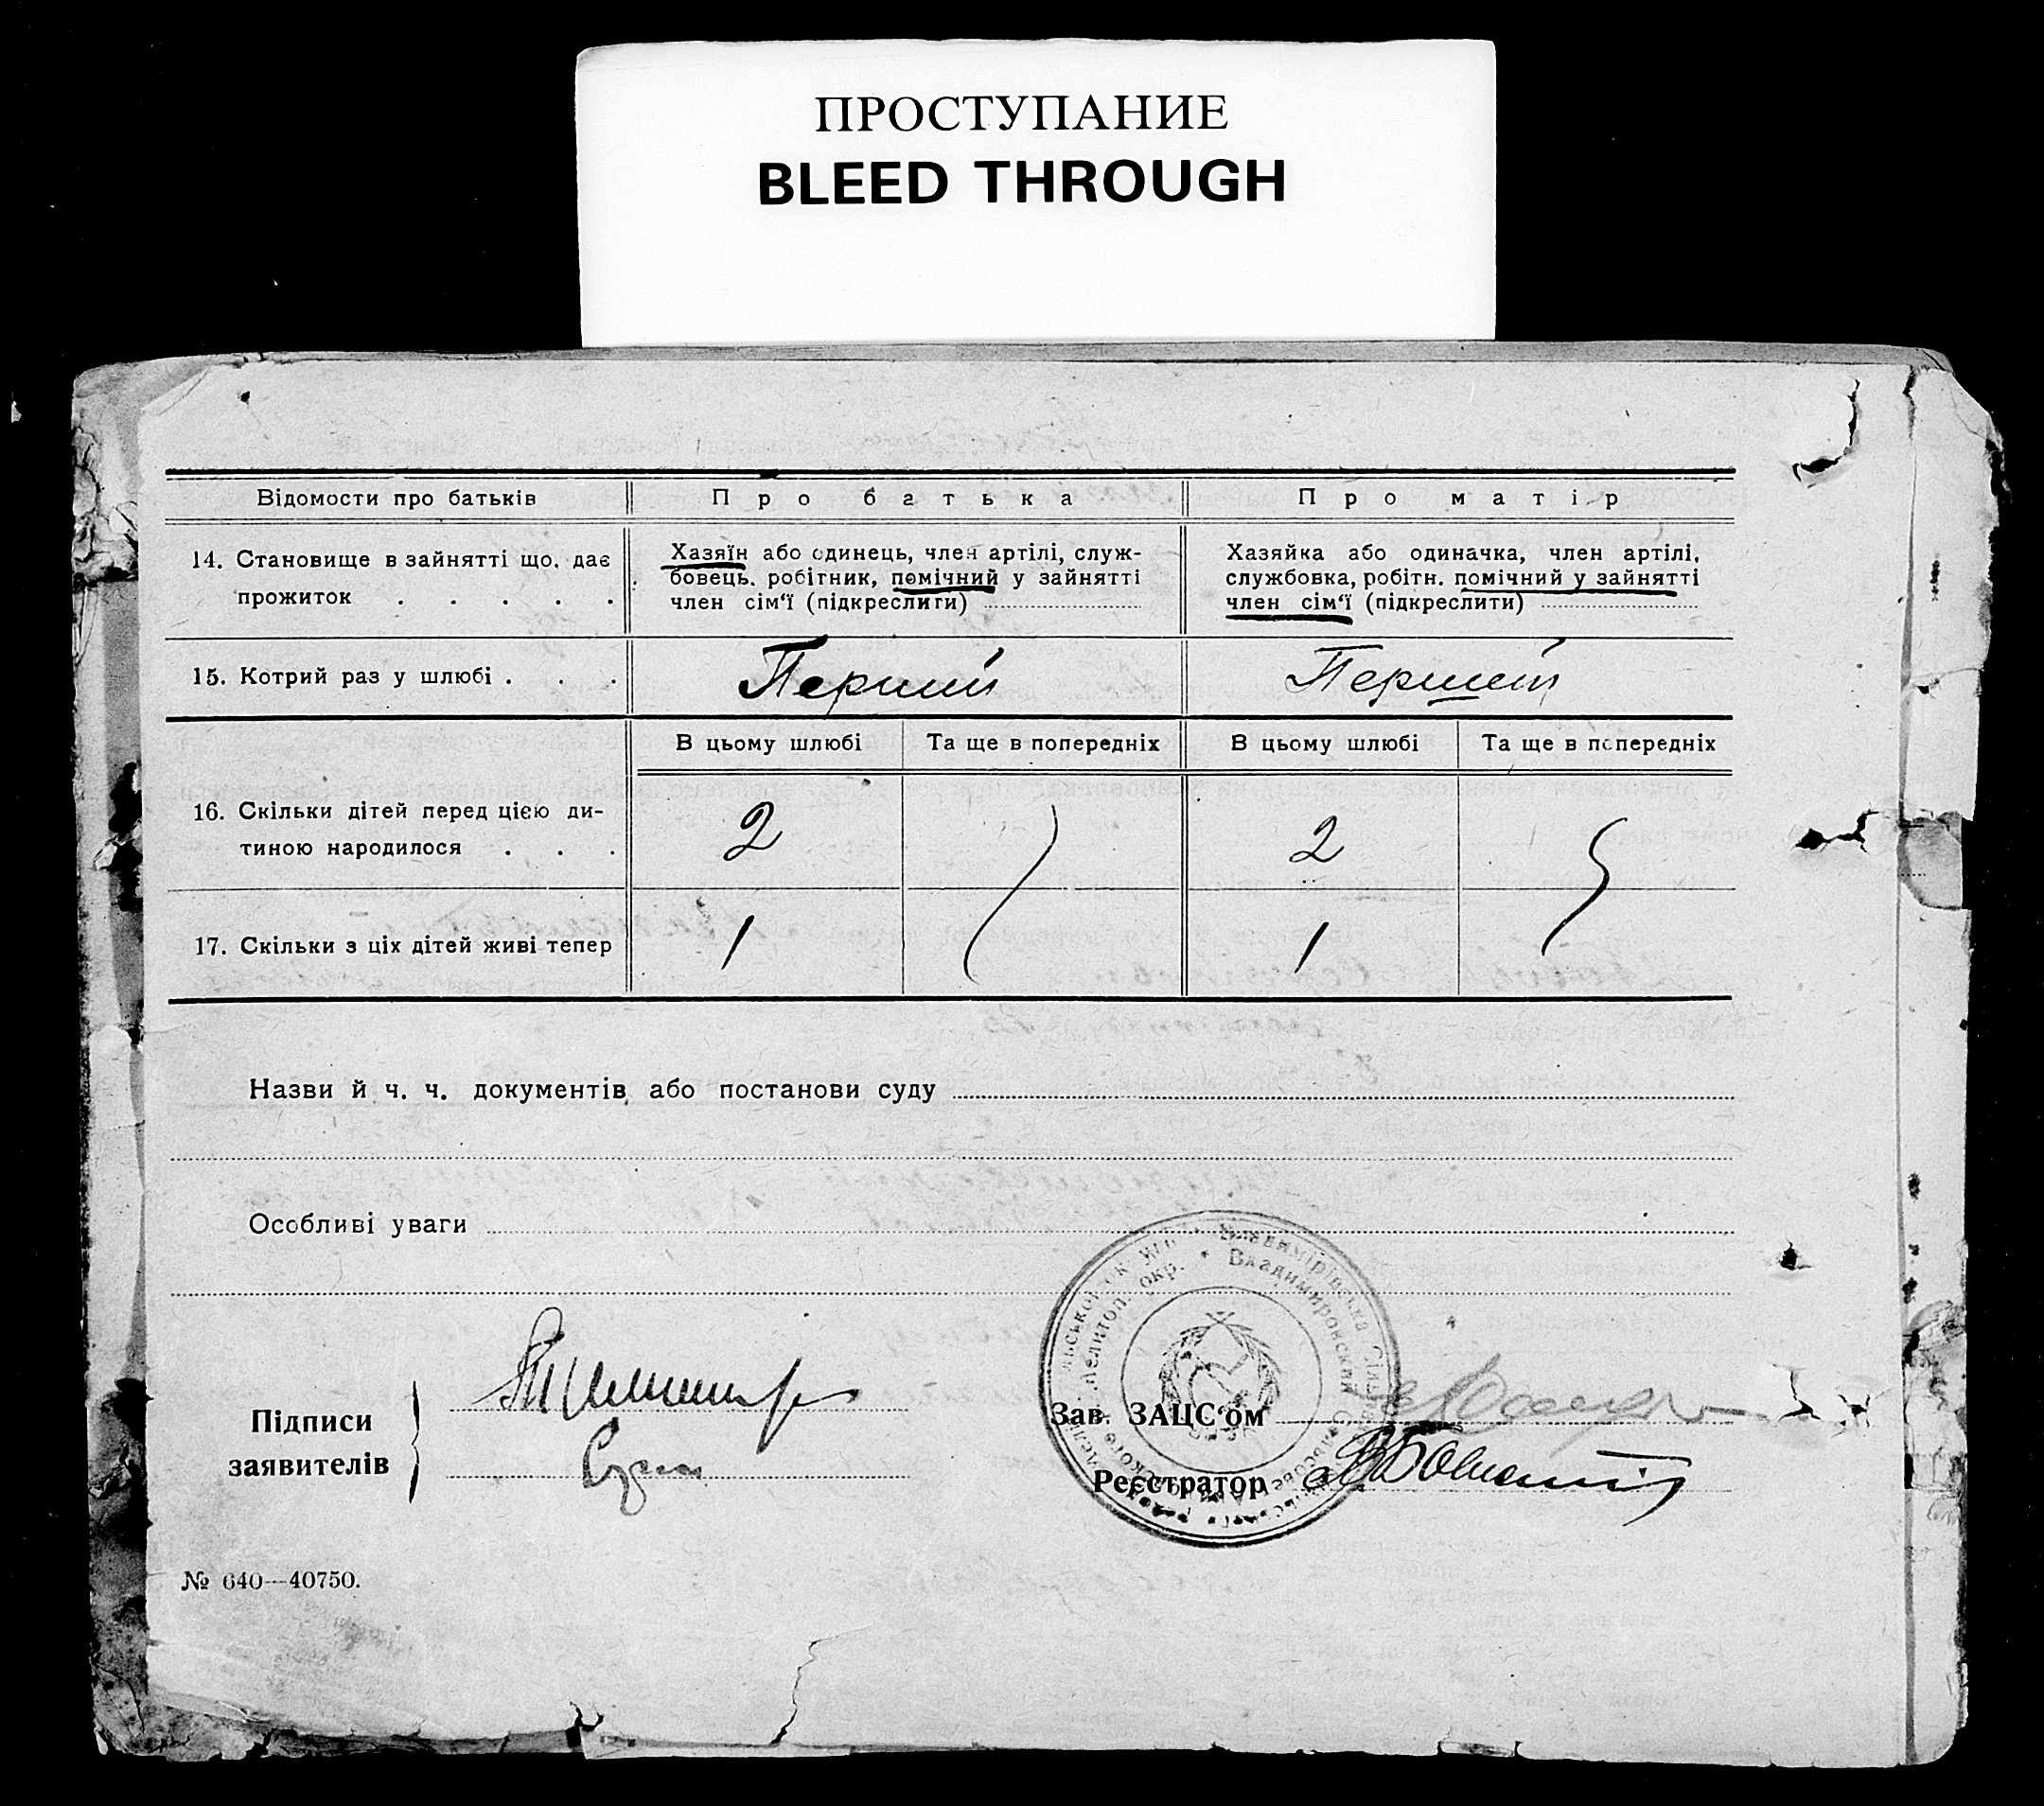 ПРОСТУПАНИЕ
BLEED THROUGH
Відомости про батьків
Про батька
Про матір
14. Становище в зайнятті що. дає
прожиток . . . . .
Хазяїн або одинець, член артілі, служ-
бовець. робігник, помічний у зайнятті
член сім'ї (підкреслити)
Хазяйка або одиначка, член артілі,
службовка, робітн. помічний у зайнятті
член сім'ї (підкреслити)
15. Котрий раз у шлюбі . . .
Перший
Перший
В цьому шлюбі
Та ще в попередніх
В цьому шлюбі
Та ще в попередніх
16. Скільки дітей перед цією ди-
тиною народилося . . .
2
2
17. Скільки з ціх дітей живі тепер
1
1
Назви й ч. ч. документів або постанови суду
Особливі уваги
Мелитоп. окр. • Владимировский
Підписи
заявителів
Зав. ЗАЦС'ом
Реєстратор
№ 640—40750.